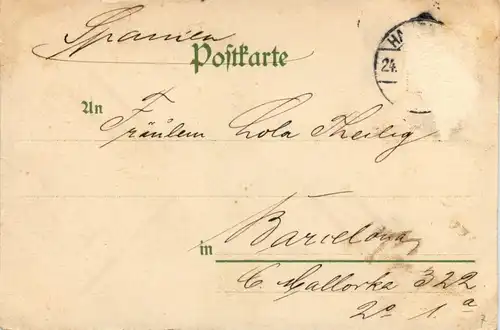 Spanien
Postkarte
HA
24.
An
Fräulein Lola Theilig
in Barcelona
C. Mallorka 322
2º 1ª